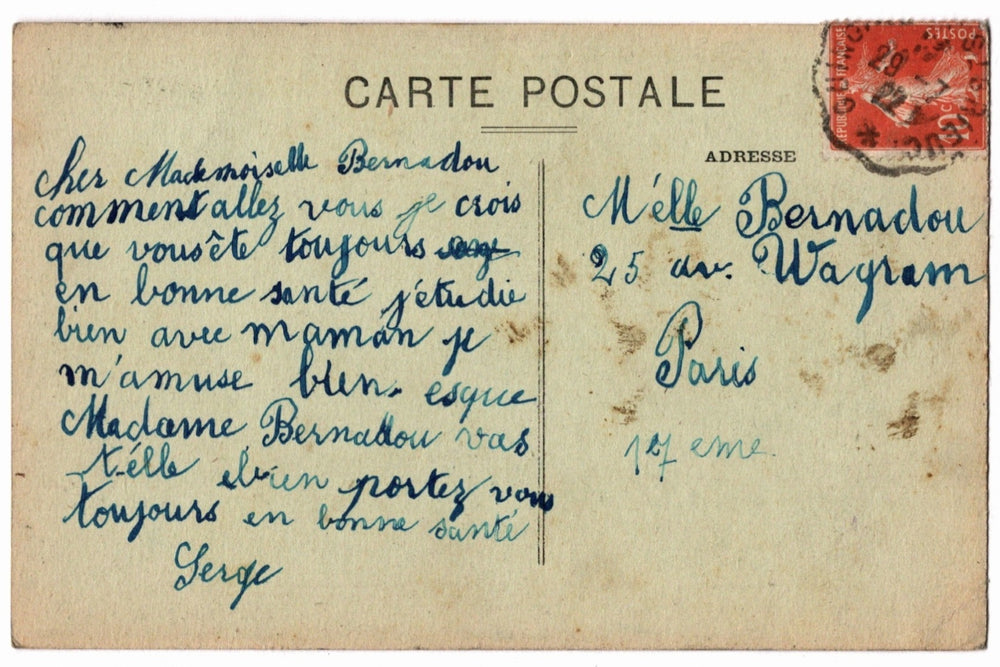 CARTE POSTALE
ADRESSE
POSTES
REPUBLIQUE FRANÇAISE
10
29
22
cher Mademoiselle Bernadou
comment allez vous je crois
que vous ête toujours
en bonne santé j'étudie
bien avec maman je
m'amuse bien. esque
Madame Bernadou vas
t-élle bien portez vous
toujours en bonne santé
Serge
Mélle Bernadou
25 av. Wagram
Paris
17 eme